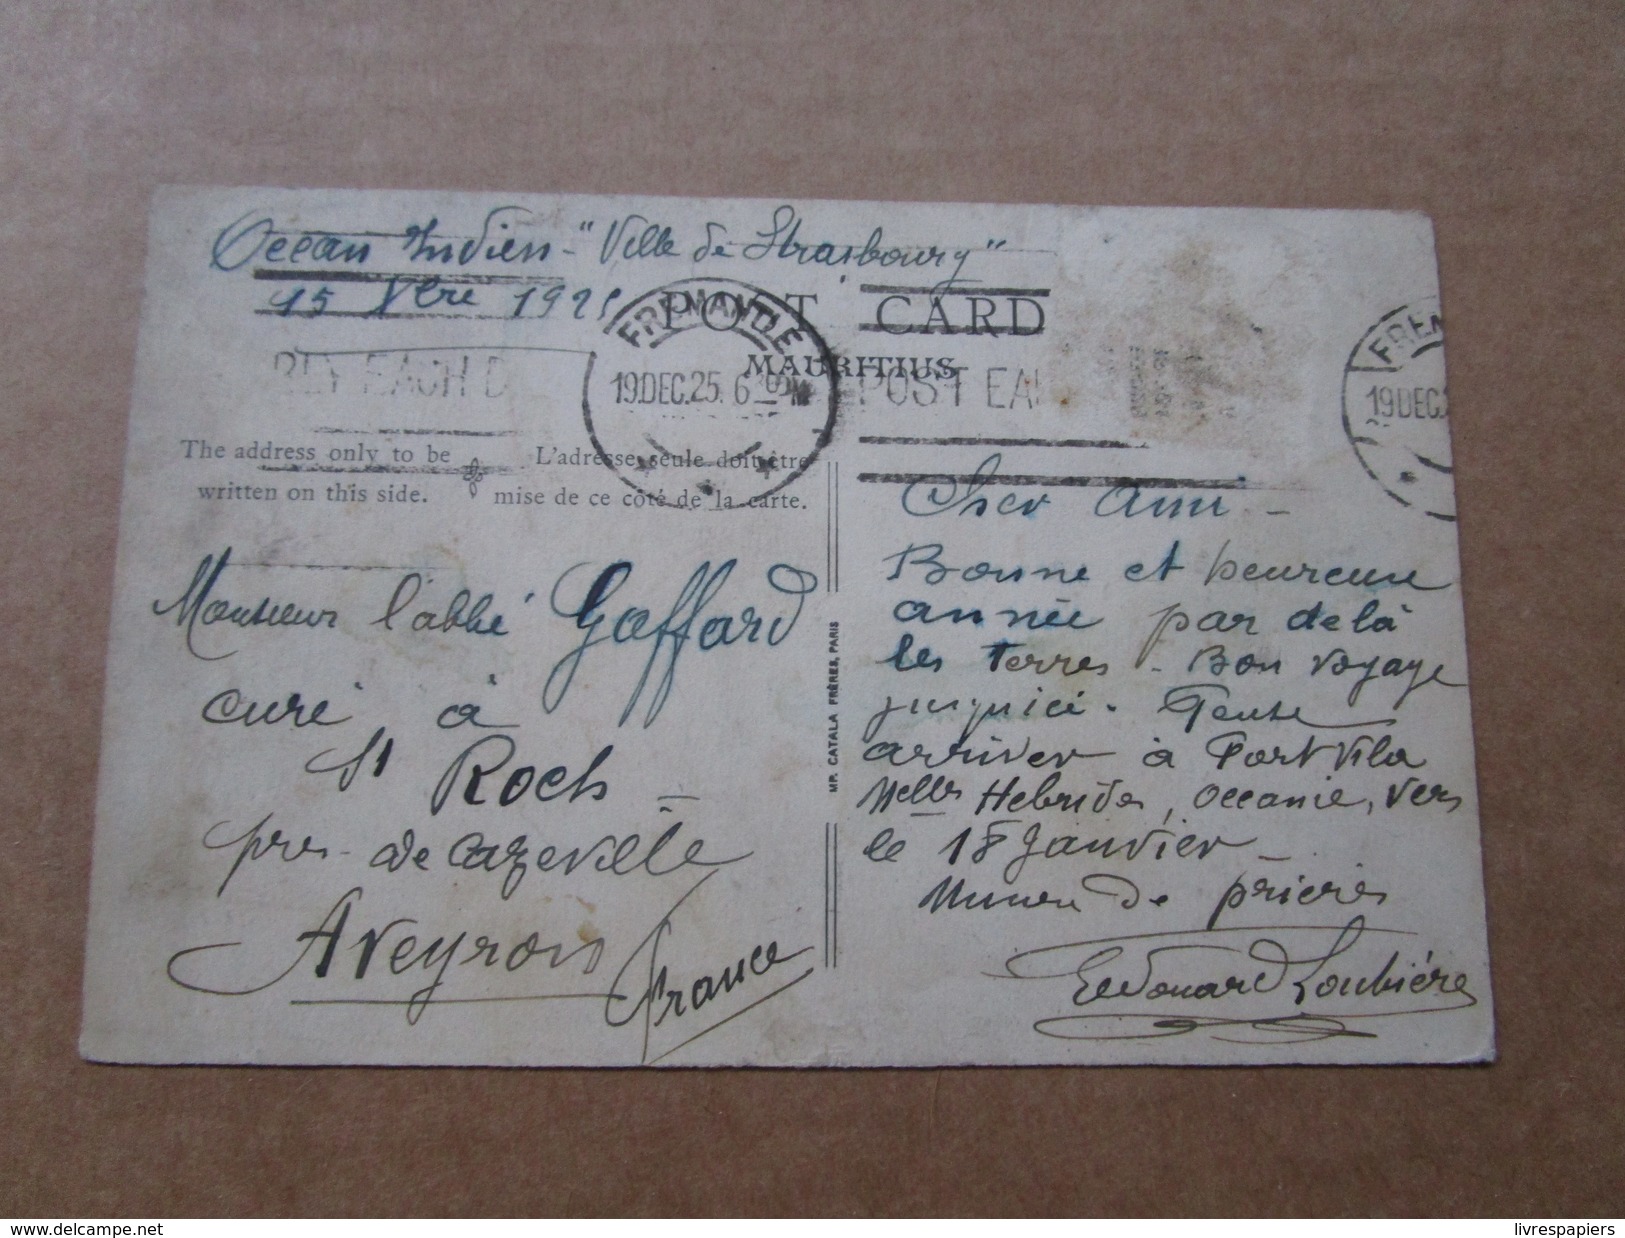 Océan Indien - "Ville de Strasbourg"
15 Xbre 1925
POST CARD
MAURITIUS
FREMANTLE
19 DEC. 25. 6 30 PM
RLY EACH D
POST EA
FREM
19 DEC.
The address only to be
written on this side.
L'adresse seule doit être
mise de ce côté de la carte.
Monsieur l'abbé Gaffard
curé à
St Roch
près de Cazeville
Aveyron
France
MP. CATALA FRÈRES, PARIS
Cher Ami -
Bonne et heureuse
année par delà
les Terres - Bon voyage
jusqu'ici. Pense
arriver à Port Vila
Nelles Hebrides, Oceanie, vers
le 18 Janvier -
Union de prières
Edouard Loubière
www.delcampe.net
livrespapiers